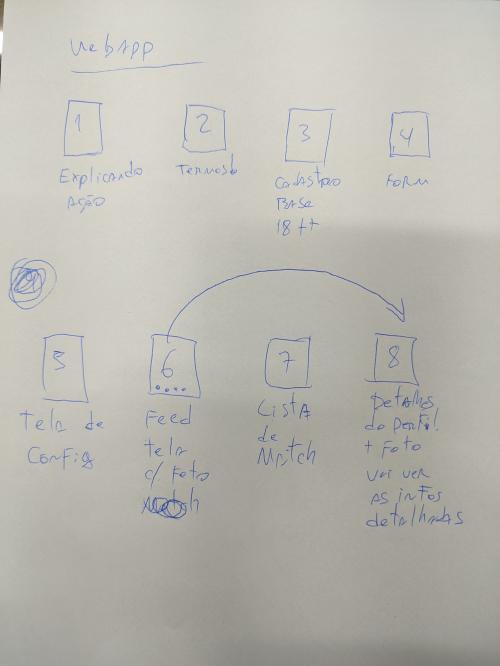 WebApp
1
Explicando
Ação
2
Termos
3
Cadastro
Base
18++
4
Form
5
Tela de
Config
6
Feed
tela
c/ Foto
7
Lista
de
Match
8
Detalhes
do perfil
+ Foto
vai ver
as infos
detalhadas